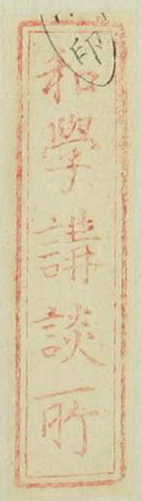 印
和學講談所